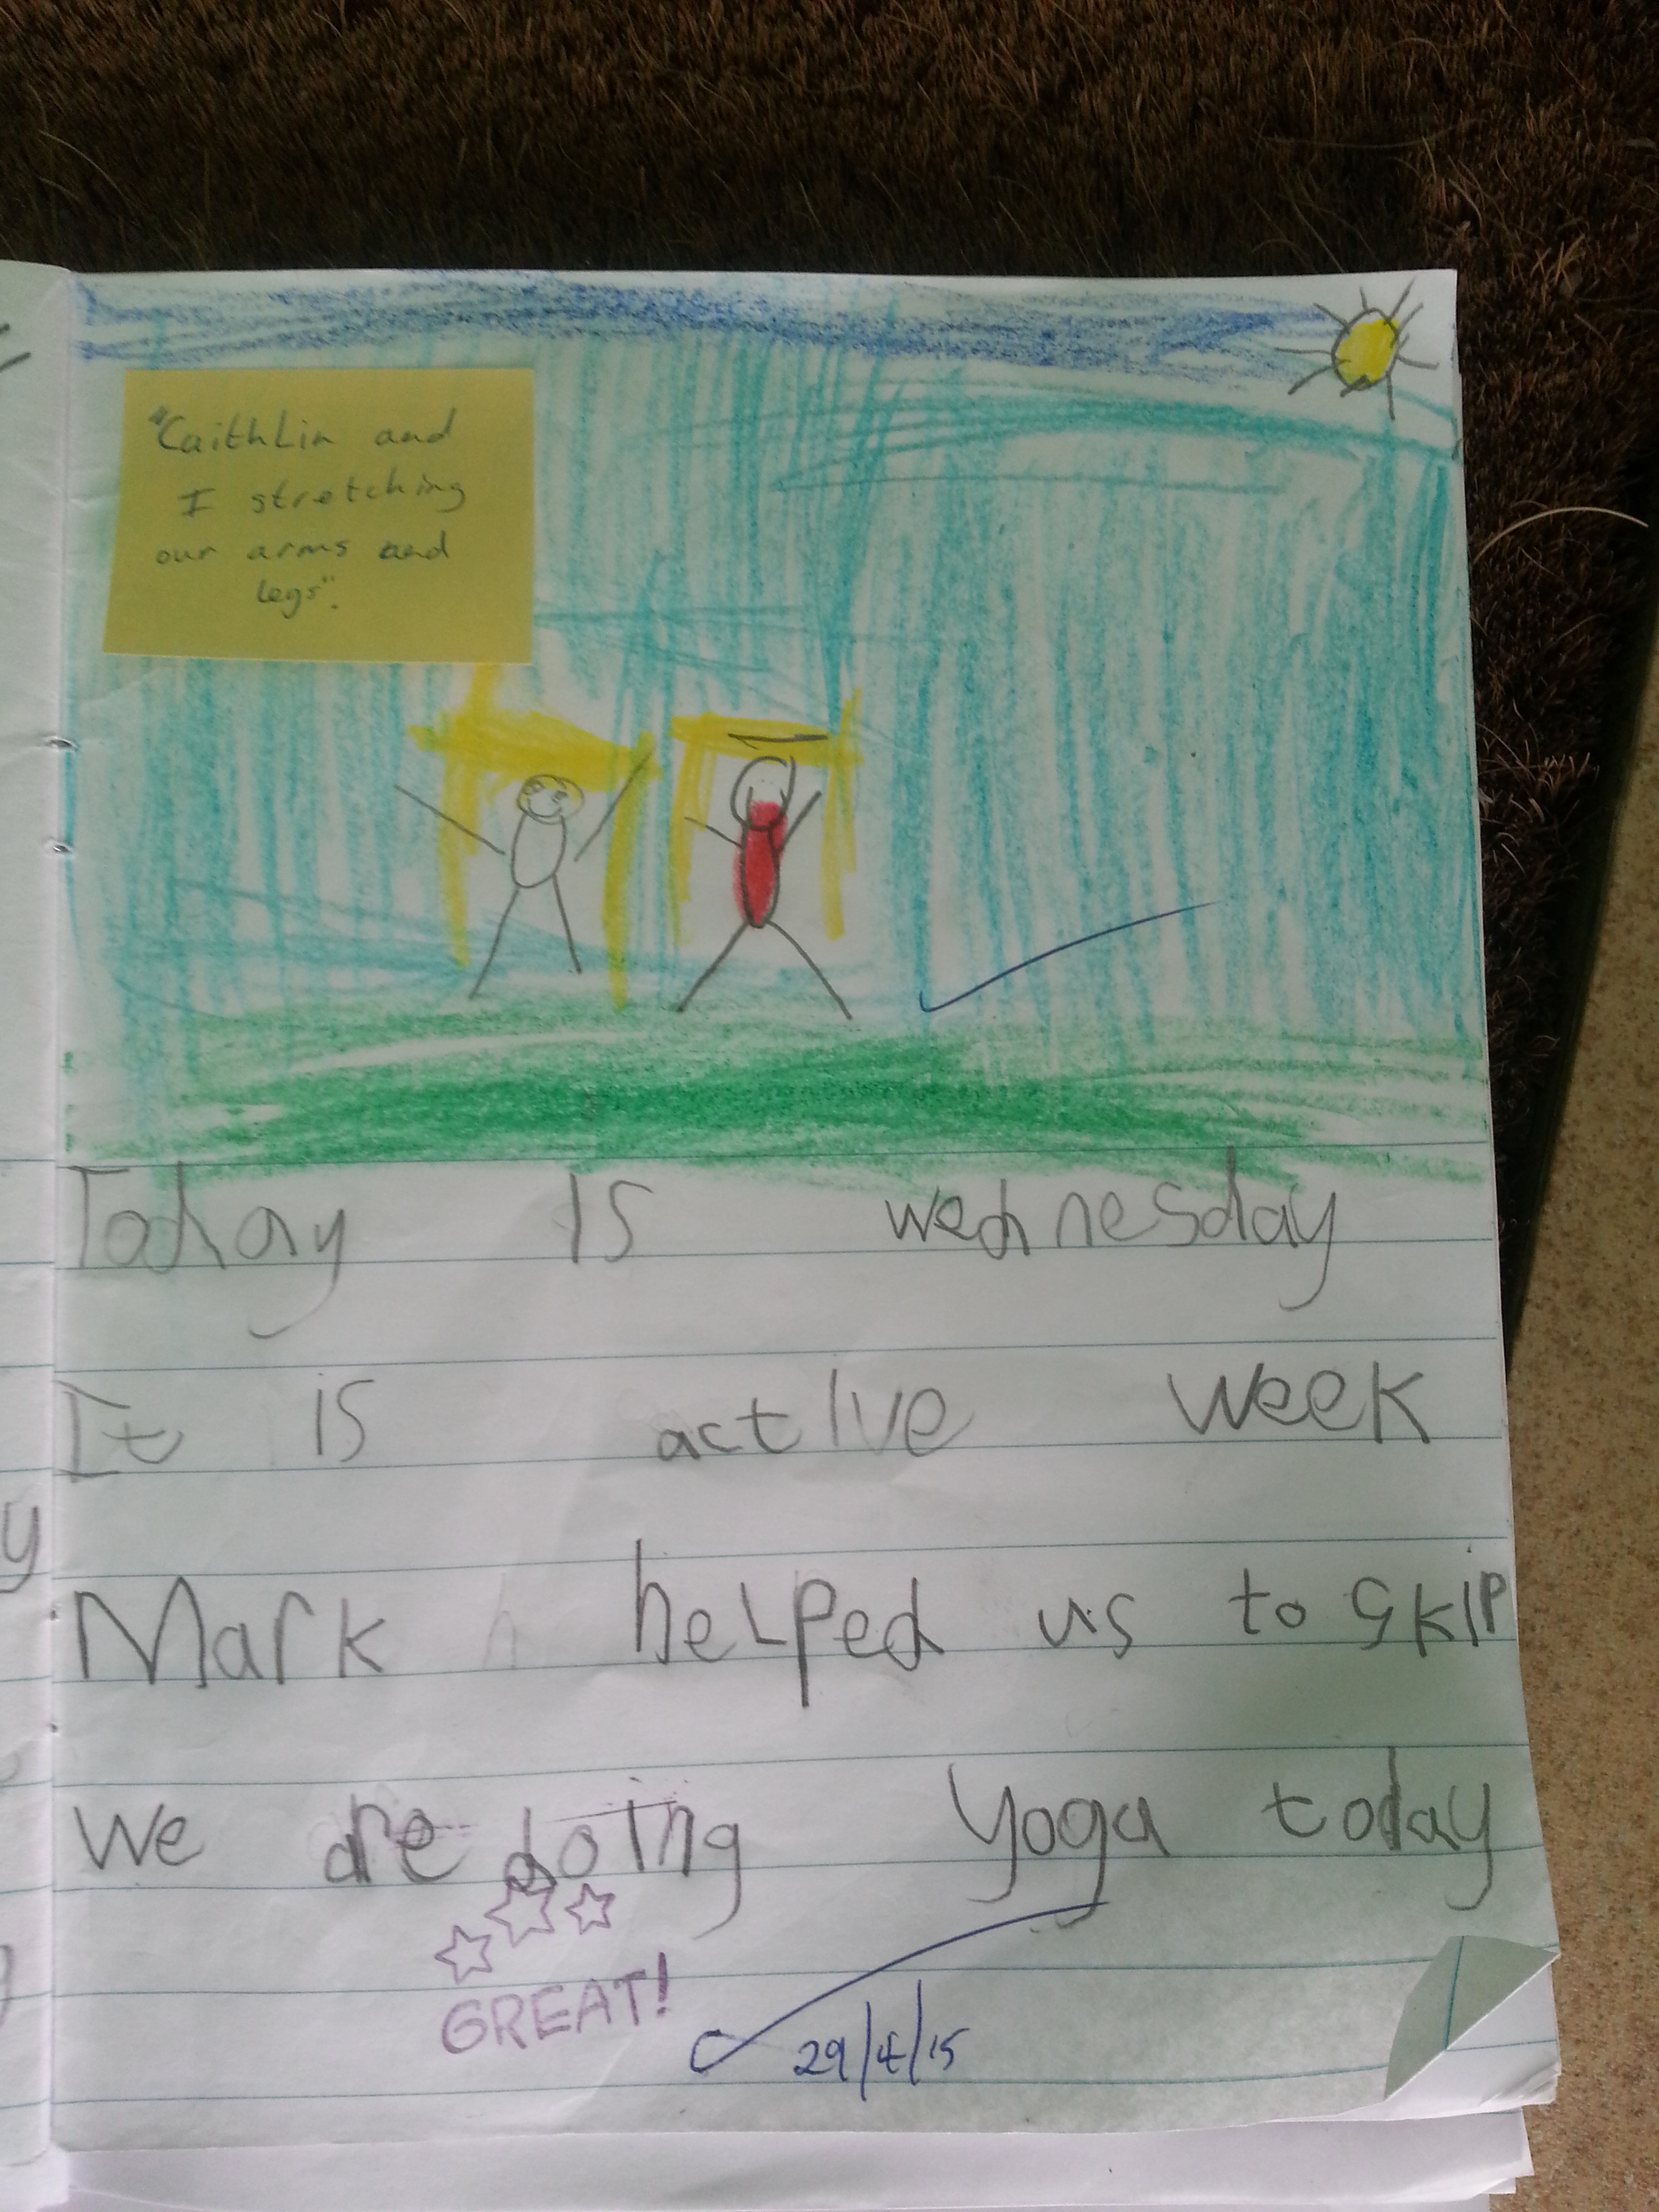 "Caithlin and
I stretching
our arms and
legs".
Today is wednesday
It is active week
Mark helped us to skip
We are doing yoga today
GREAT!
29/4/15